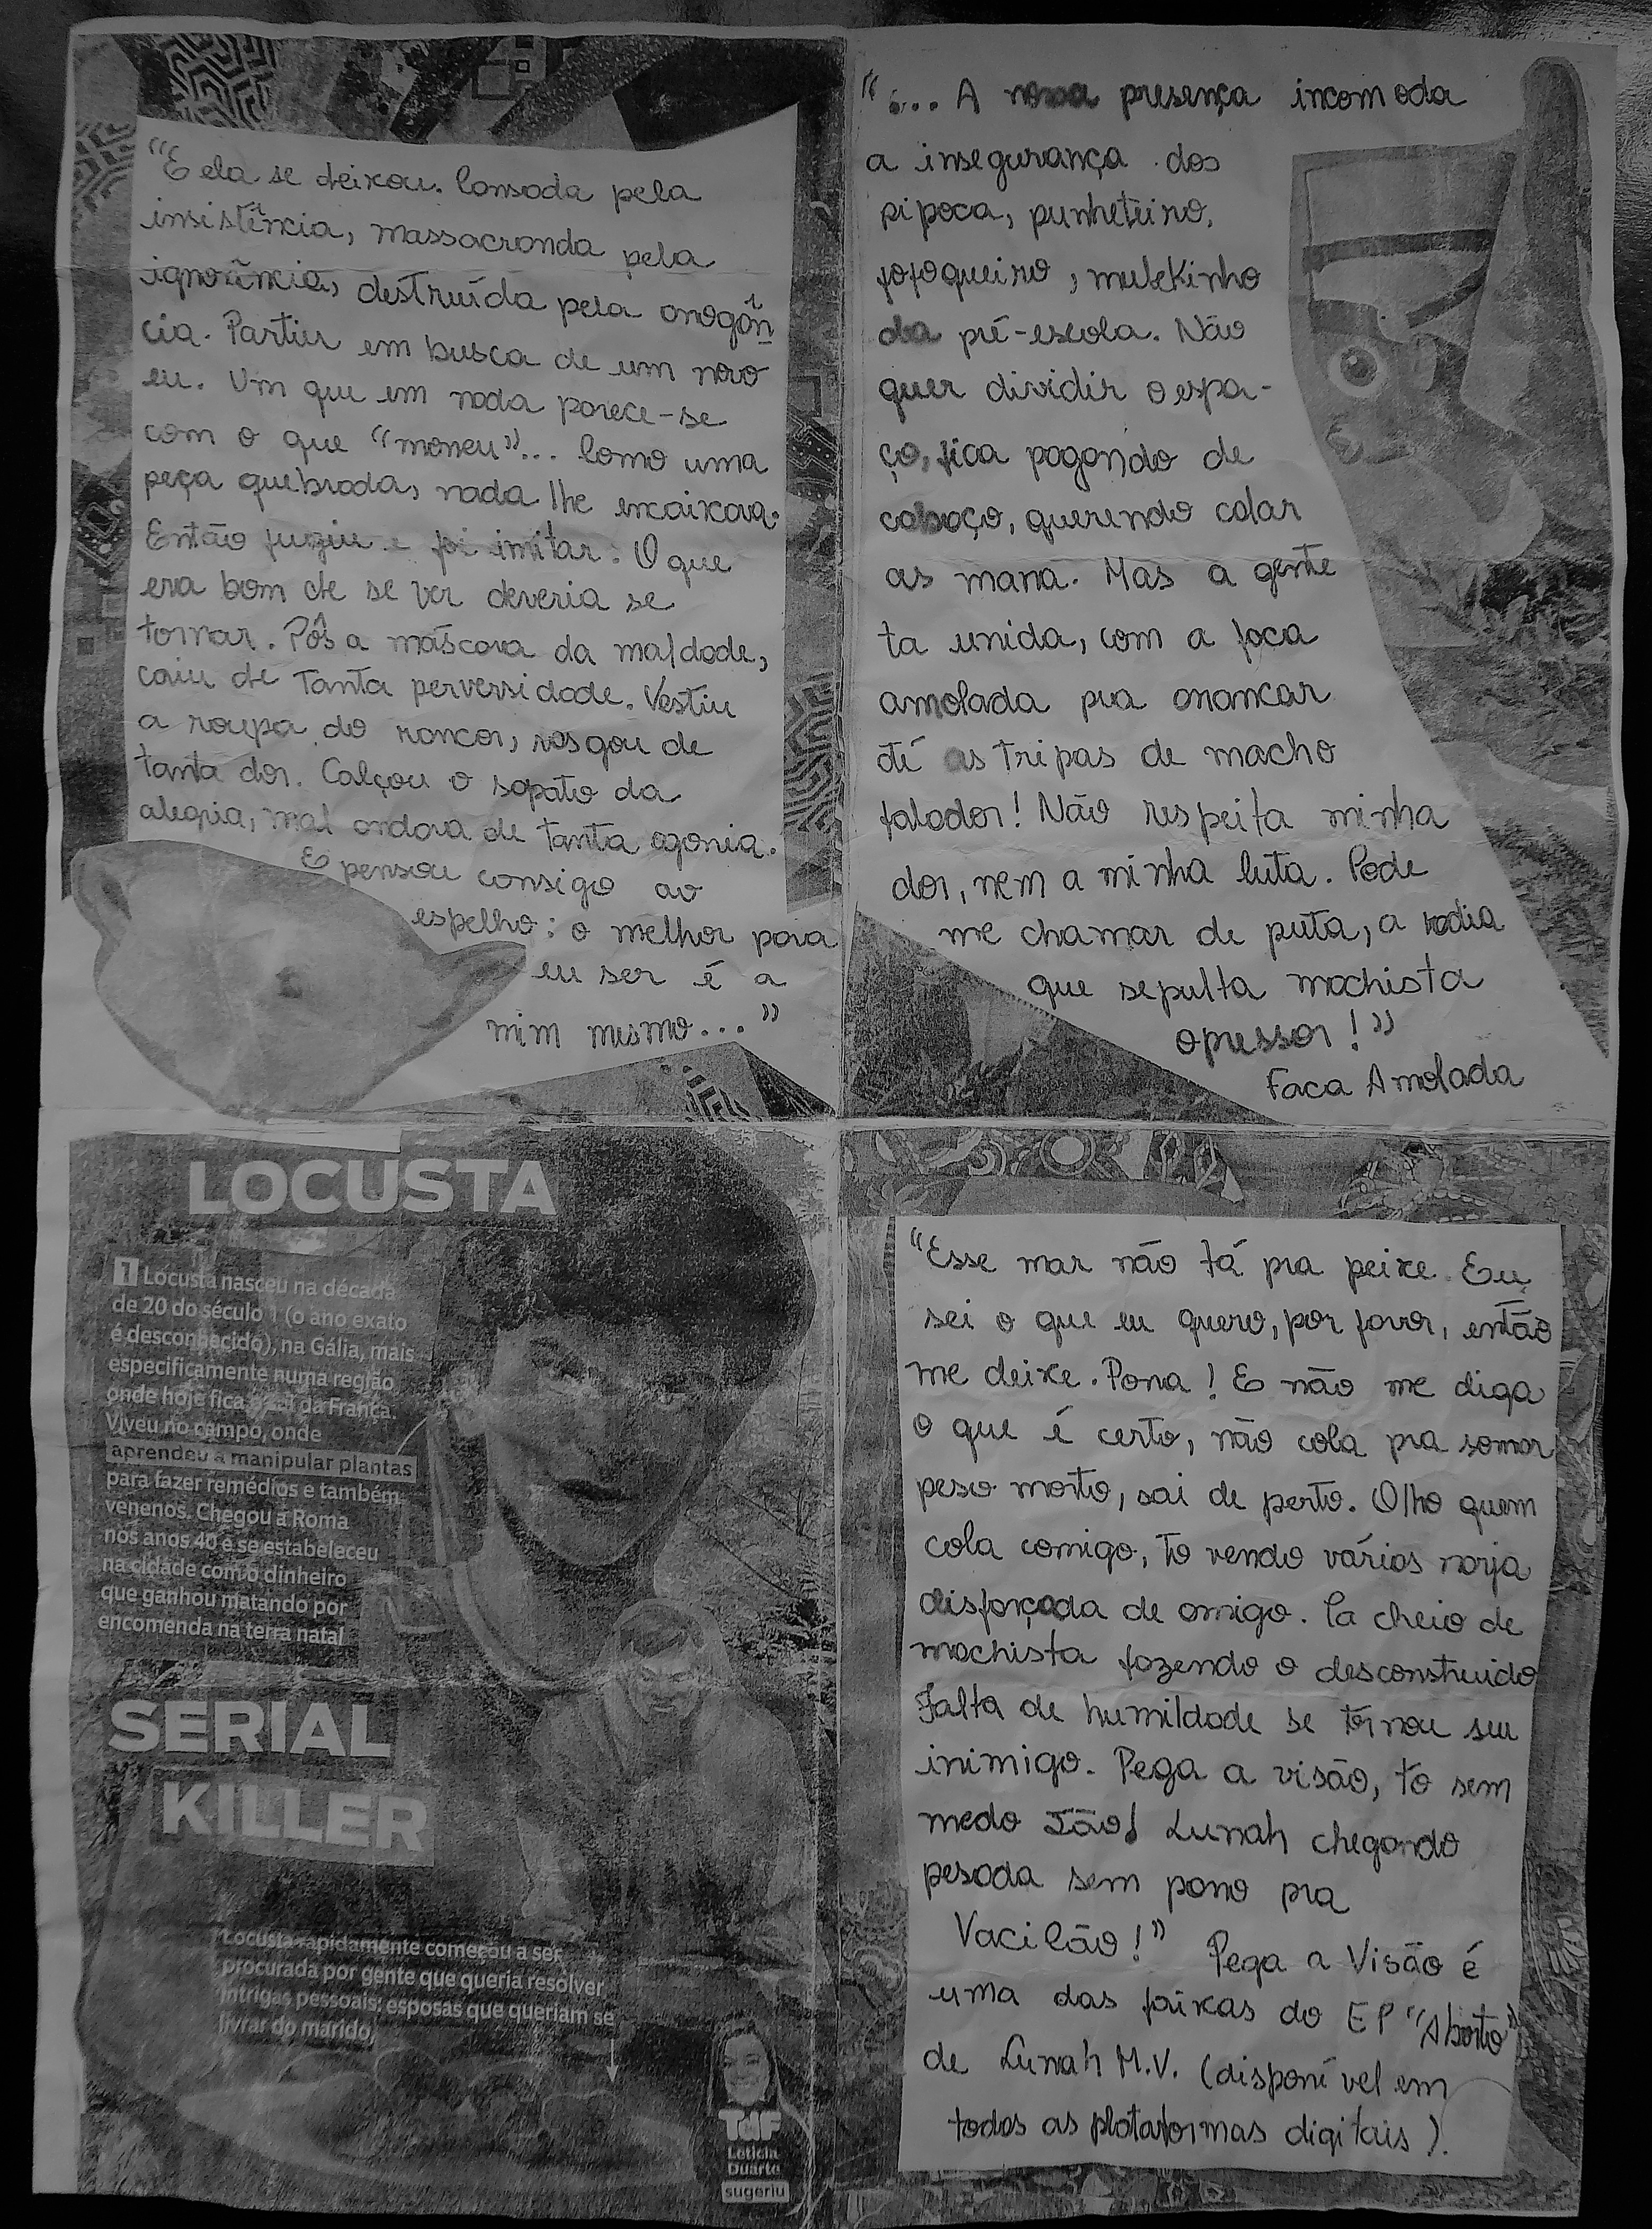 "E ela se deixou. Cansada pela
insistência, massacranda pela
ignorância, destruída pela arrogân
cia. Partiu em busca de um novo
eu. Um que em nada parece-se
com o que "morreu"... Como uma
peça quebrada, nada lhe encaixava.
Então fugiu e foi imitar. O que
era bom de se ver deveria se
tornar. Pôs a máscara da maldade,
caiu de tanta perversidade. Vestiu
a roupa do rancor, rasgou de
tanta dor. Calçou o sapato da
alegria, mal andava de tanta agonia.
E pensou consigo ao
espelho: o melhor para
eu ser é a
mim mesmo..."
"... A nossa presença incomoda
a insegurança dos
pipoca, punheteiro,
fofoqueiro, mulekinho
da pré-escola. Não
quer dividir o espa-
ço, fica pagando de
cabaço, querendo colar
as mana. Mas a gente
ta unida, com a faca
amolada pra arrancar
até as tripas de macho
falador! Não respeita minha
dor, nem a minha luta. Pode
me chamar de puta, a vadia
que sepulta machista
opressor!"
Faca Amolada
LOCUSTA
1 Locusta nasceu na década
de 20 do século 1 (o ano exato
é desconhecido), na Gália, mais
especificamente numa região
onde hoje fica o sul da França.
Viveu no campo, onde
aprendeu a manipular plantas
para fazer remédios e também
venenos. Chegou a Roma
nos anos 40 e se estabeleceu
na cidade com o dinheiro
que ganhou matando por
encomenda na terra natal
SERIAL
KILLER
Locusta rapidamente começou a ser
procurada por gente que queria resolver
intrigas pessoais: esposas que queriam se
livrar do marido,
TdF
Leticia
Duarte
sugeriu
"Esse mar não tá pra peixe. Eu
sei o que eu quero, por favor, então
me deixe. Porra! E não me diga
o que é certo, não cola pra somar
peso morto, sai de perto. Olho quem
cola comigo, to vendo várias narja
disfarçada de amigo. Ta cheio de
machista fazendo o desconstruido
Falta de humildade se tornou seu
inimigo. Pega a visão, to sem
medo Jão! Lunah chegando
pesada sem pano pra
Vacilão!" Pega a Visão é
uma das faixas do EP "Aborto"
de Lunah M.V. (disponível em
todas as plataformas digitais).